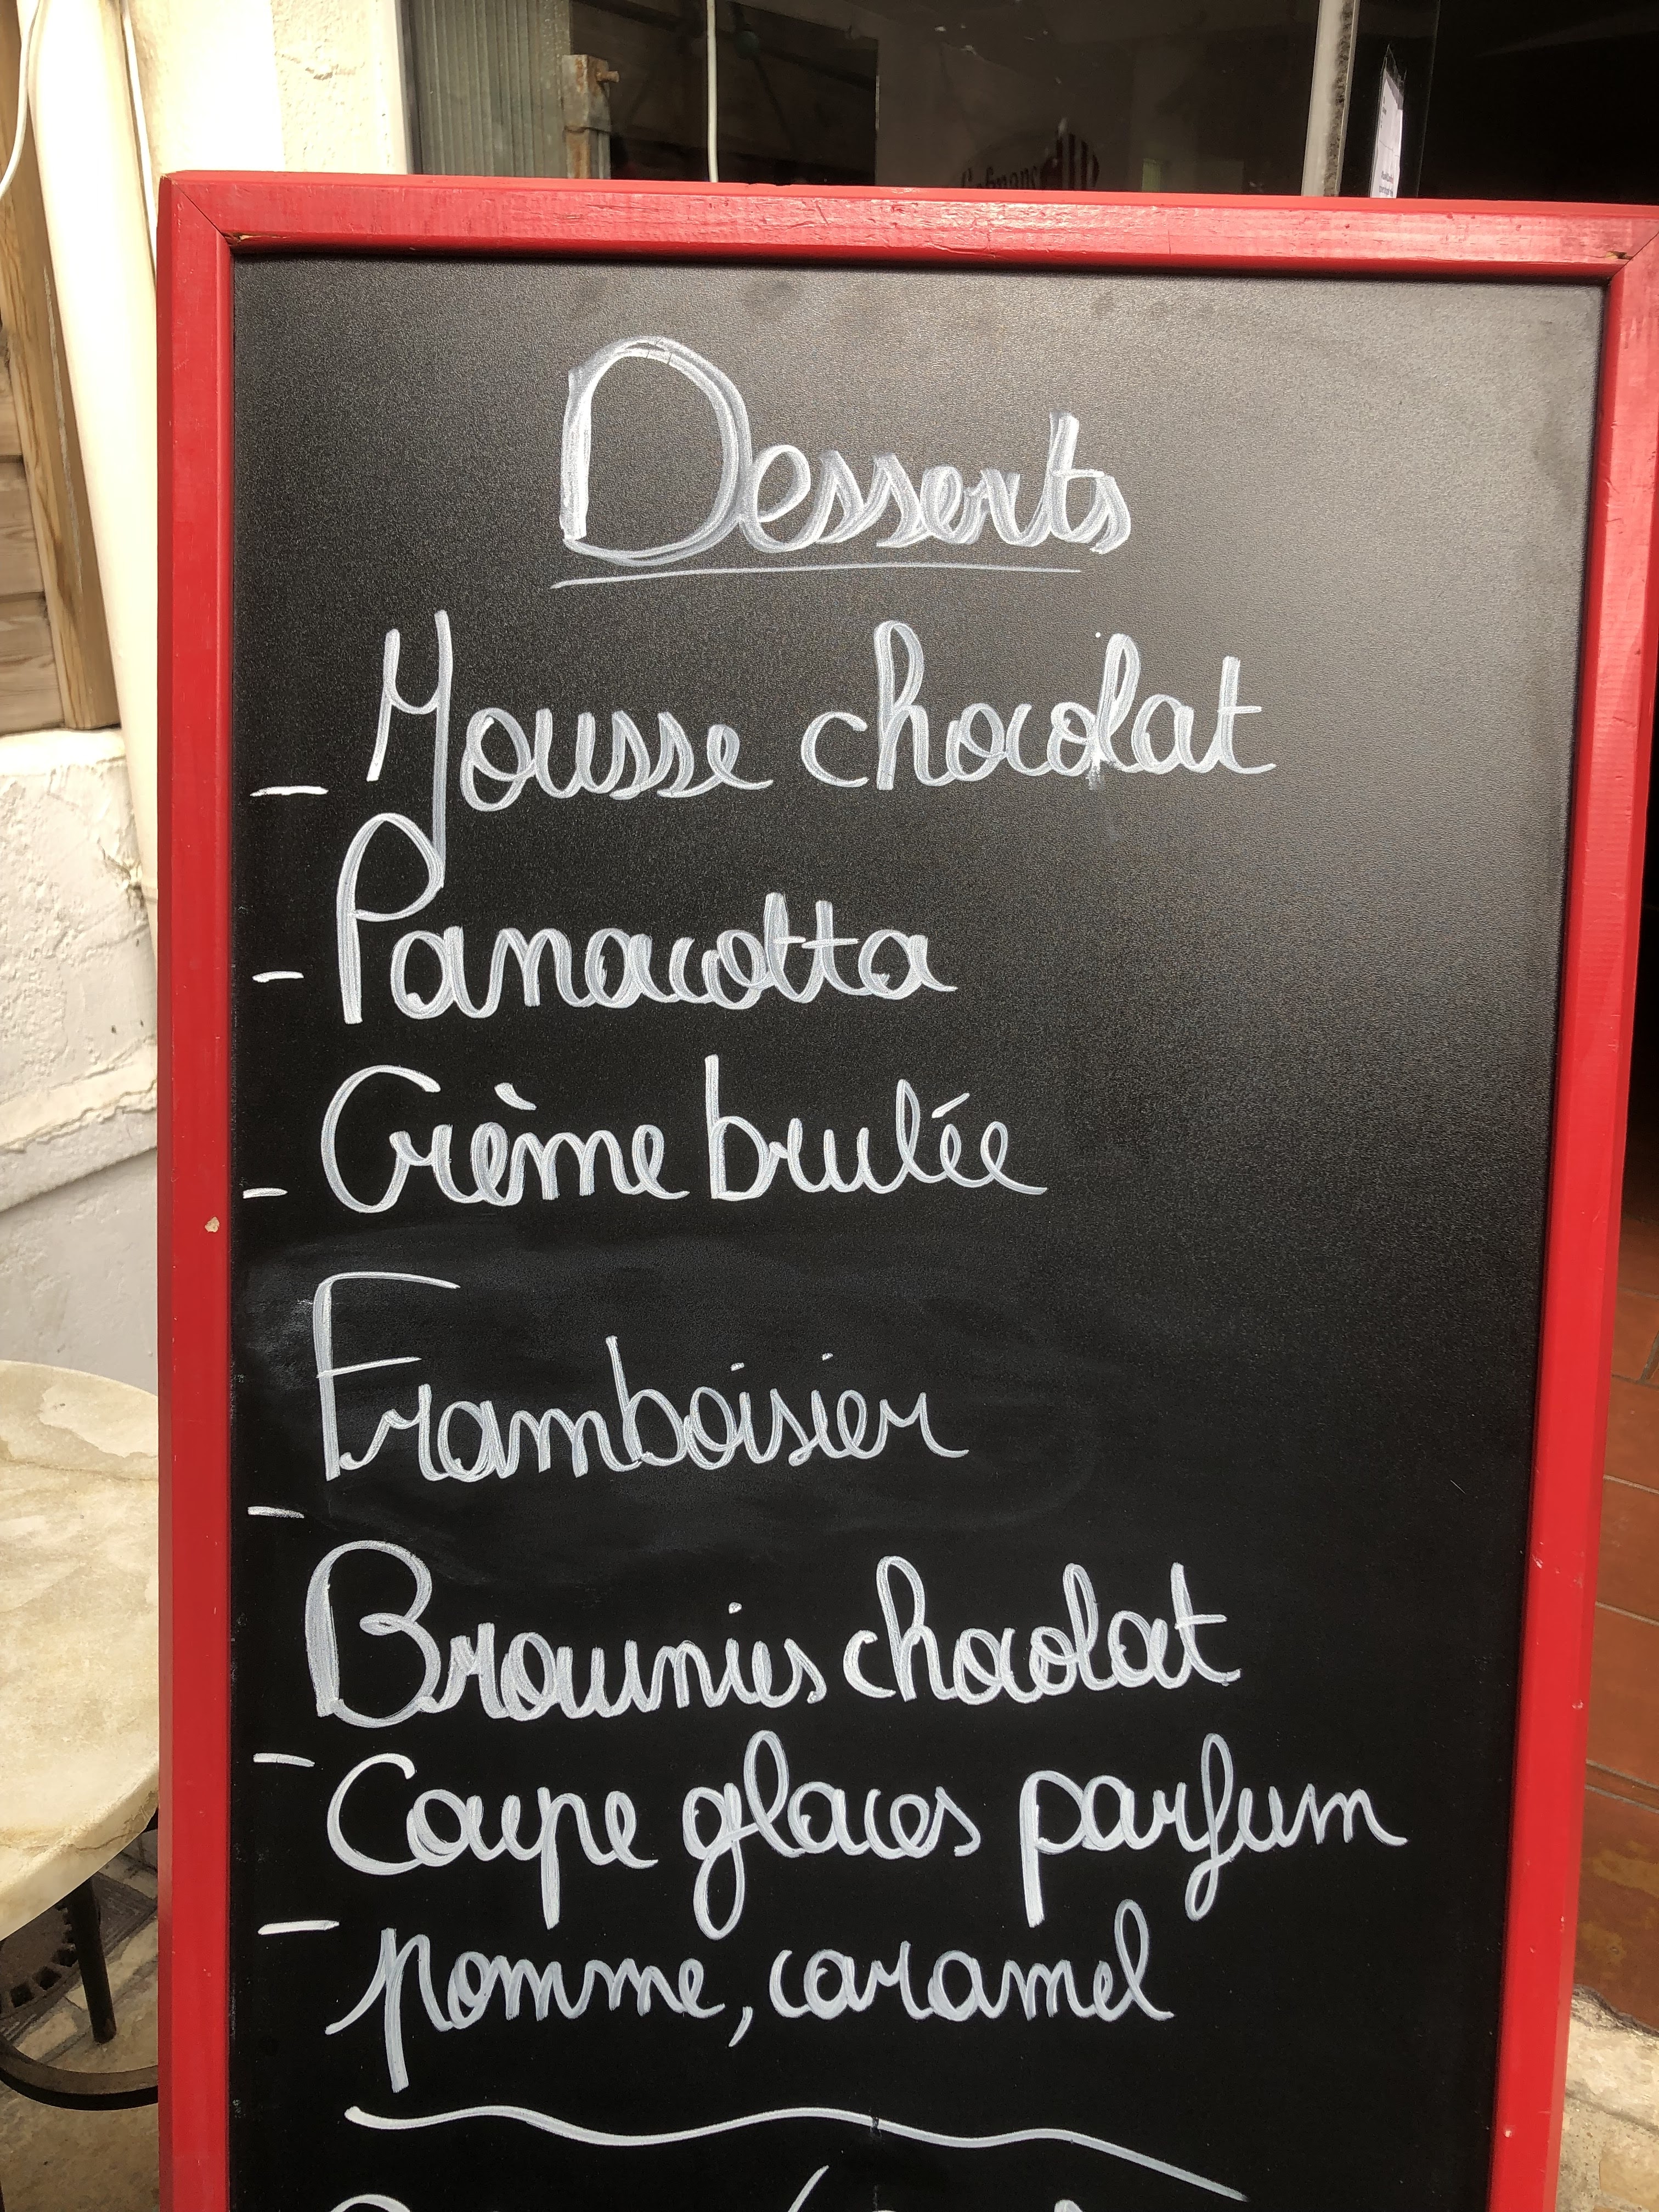 Desserts
- Mousse chocolat
- Panacotta
- Crème brulée
Framboisier
- Brownies chocolat
- Coupe glaces parfum
- pomme, caramel